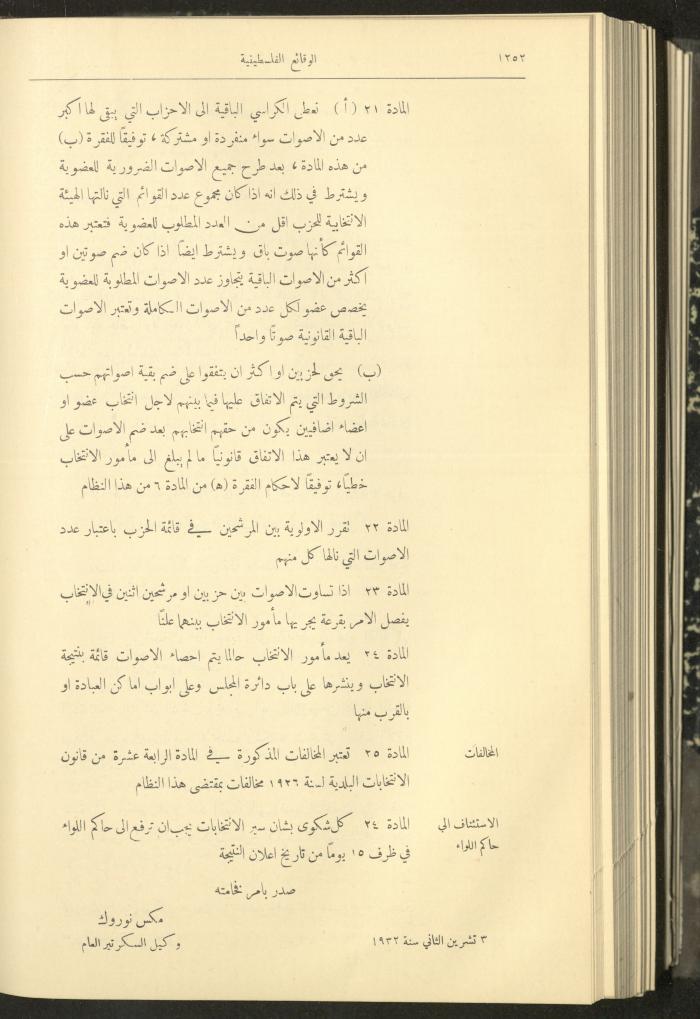 ١٢٥٢
الوقائع الفلسطينية
المادة ٢١ (أ) تعطى الكراسي الباقية الى الاحزاب التي يبقى لها اكبر
عدد من الاصوات سواء منفردة او مشتركة ، توفيقاً للفقرة (ب)
من هذه المادة ، بعد طرح جميع الاصوات الضرورية للعضوية
ويشترط في ذلك انه اذا كان مجموع عدد القوائم التي نالتها الهيئة
الانتخابية للحزب اقل من العدد المطلوب للعضوية فتعتبر هذه
القوائم كأنها صوت باق ويشترط ايضاً اذا كان ضم صوتين او
اكثر من الاصوات الباقية يتجاوز عدد الاصوات المطلوبة للعضوية
يخصص عضو لكل عدد من الاصوات الكاملة وتعتبر الاصوات
الباقية القانونية صوتاً واحداً
(ب) يحق لحزبين او اكثر ان يتفقوا على ضم بقية اصواتهم حسب
الشروط التي يتم الاتفاق عليها فيما بينهم لاجل انتخاب عضو او
اعضاء اضافيين يكون من حقهم انتخابهم بعد ضم الاصوات على
ان لا يعتبر هذا الاتفاق قانونياً ما لم يبلغ الى مأمور الانتخاب
خطياً، توفيقاً لاحكام الفقرة (ه) من المادة ٦ من هذا النظام
المادة ٢٢ تقرر الاولوية بين المرشحين في قائمة الحزب باعتبار عدد
الاصوات التي نالها كل منهم
المادة ٢٣ اذا تساوت الاصوات بين حزبين او مرشحين اثنين في الانتخاب
يفصل الامر بقرعة يجريها مأمور الانتخاب بينهما علناً
المادة ٢٤ يعد مأمور الانتخاب حالما يتم احصاء الاصوات قائمة بنتيجة
الانتخاب وينشرها على باب دائرة المجلس وعلى ابواب اماكن العبادة او
بالقرب منها
المخالفات
المادة ٢٥ تعتبر المخالفات المذكورة في المادة الرابعة عشرة من قانون
الانتخابات البلدية لسنة ١٩٢٦ مخالفات بمقتضى هذا النظام
الاستئناف الى
حاكم اللواء
المادة ٢٤ كل شكوى بشان سير الانتخابات يجب ان ترفع الى حاكم اللواء
في ظرف ١٥ يوماً من تاريخ اعلان النتيجة
صدر بامر فخامته
مكس نوروك
وكيل السكرتير العام
٣ تشرين الثاني سنة ١٩٣٢